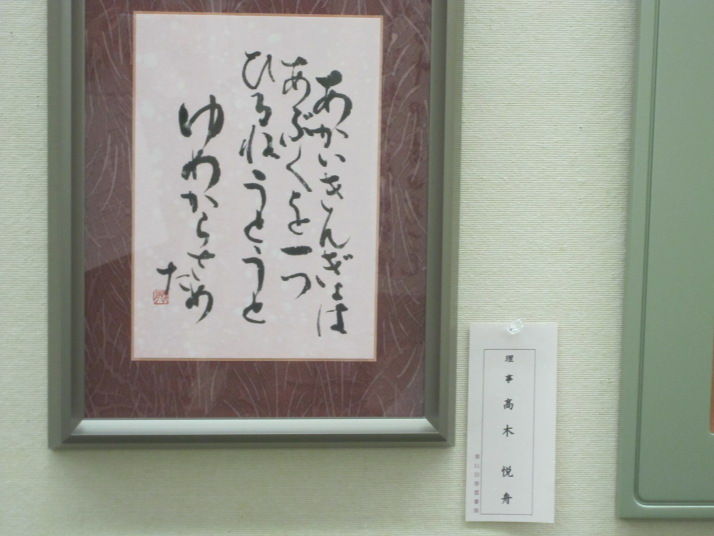 あかいきんぎょは
あぶくを一つ
ひるねうとうと
ゆめからさめ
た
理事 高木 悦舟